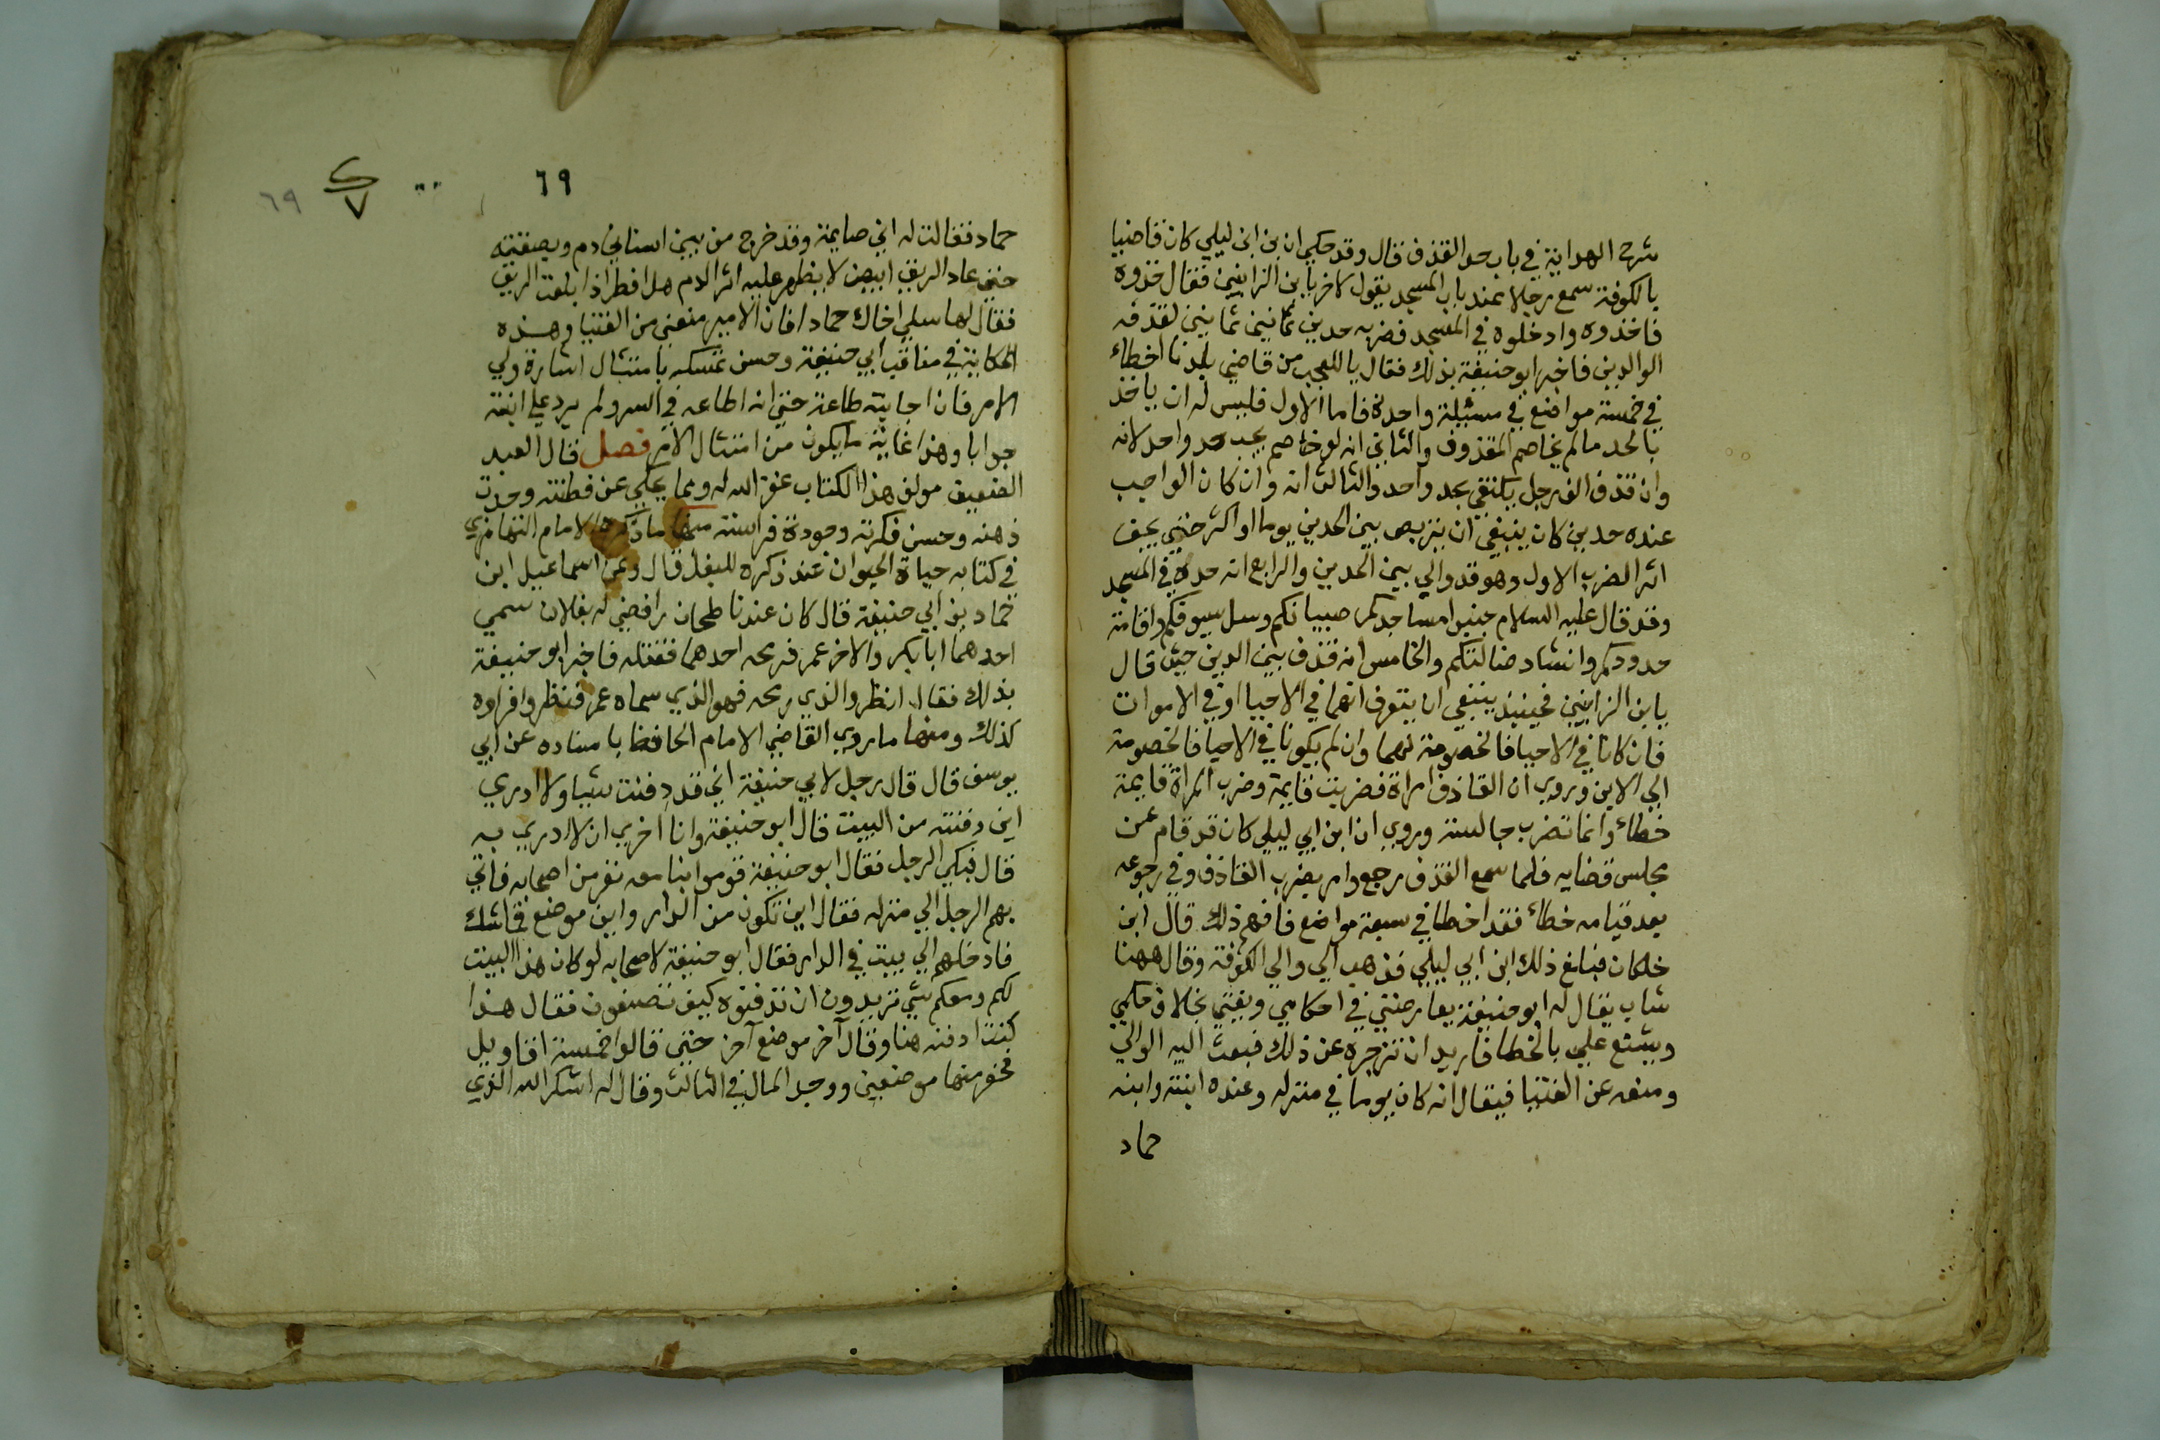 شرح الهداية في باب حد القذف قال وقد حكي ان بن ابي ليلي كان قاضيا
بالكوفة سمع رجلا عند باب المسجد يقول لاخر يا بن الزانيين فقال خذوه
فاخذوه وادخلوه في المسجد فضربه حدين ثمانين ثمانين لقذفه
الوالدين فاخبر ابو حنيفة بذلك فقال يا للعجب من قاضي بلدنا اخطاء
في خمسة مواضع في مسئيلة واحدة فاما الاول فليس له ان ياخذ
بالحد مالم يخاصم المقذوف والثاني انه لو خاصم يجب حد واحد لانه
وان قذف الف رجل يكتفي بحد واحد والثالث انه وان كان الواجب
عنده حدين كان ينبغي ان يتربص بين الحدين يوما او اكثر حتي يجف
اثر الضرب الاول وهو قد والي بين الحدين والرابع انه حده في المسجد
وقد قال عليه السلام جنبوا مساجدكم صبيانكم وسل سيوفكم واقامة
حدودكم وانشاد ضالتكم والخامس انه قذف بين الدين حيث قال
يا بن الزانيين فحينيذ ينبغي ان يتعرف انهما في الاحيا او في الاموات
فان كانا في الاحيا فالخصومة لهما وان لم يكونا في الاحيا فالخصومة
الي الابن وروي ان القاذف امراة فضربت قايمة وضرب المراة قايمة
خطاء وانما تضرب جالسة وروي ان ابن ابي ليلي كان قد قام عن
مجلس قضايه فلما سمع القذف رجع وامر بضرب القاذف وفي رجوعه
بعد قيامه خطاء فقد اخطا في سبعة مواضع فافهم ذلك قال ابن
خلكان فبلغ ذلك ابن ابي ليلي فذهب الي والي الكوفة وقال ههنا
شاب يقال له ابو حنيفة يعارضني في احكامي ويفتي بخلاف حكمي
ويشنع علي بالخطا فاريد ان تزجره عن ذلك فبعث اليه الوالي
ومنعه عن الفتيا فيقال انه كان يوما في منزله وعنده ابنته وابنه
حماد
٦٩
٦٩
حماد فقالت له اني صايمة وقد خرج من بين اسناني دم وبصقته
حتي عاد الريق ابيض لا يظهر عليه اثر الدم هل افطر اذا بلعت الريق
فقال لها سلي اخاك حمادا فان الامير منعني من الفتيا وهذه
الحكاية في مناقب ابي حنيفة وحسن تمسكه بامتثال اشارة ولي
الامر فان اجابته طاعة حتي انه اطاعه في السر ولم يرد علي ابنته
جوابا وهذا غاية ما يكون من امتثال الامر فصل قال العبد
الضعيف مولف هذا الكتاب عفي الله له ومما يحكي عن فطنته وحدة
ذهنه وحسن فكرته وجودة فراسته منها ما ذكره الامام
في كتابه حياة الحيوان عند ذكره للبغل قال وعن اسماعيل ابن
حماد بن ابي حنيفة قال كان عندنا طحان رافضي له بغلان سمي
احدهما ابا بكر والاخر عمر فرمحه احدهما فقتله فاخبر ابو حنيفة
بذلك فقال انظروا الذي رمحه فهو الذي سماه عمر فنظروا فراوه
كذلك ومنها ما روي القاضي الامام الحافظ باسناده عن ابي
يوسف قال قال رجل لابي حنيفة اني قد دفنت شيا ولا ادري
اين دفنته من البيت قال ابو حنيفة وانا اخري ان لا ادري به
قال فبكي الرجل فقال ابو حنيفة قوموا بنا معه نفر من اصحابه فاتي
بهم الرجل الي منزله فقال اين تكون من الدار واين موضع قماشك
فادخلهم الي بيت في الدار فقال ابو حنيفة لاصحابه لو كان هذا البيت
لكم ومعكم شي تريدون ان تدفنوه كيف تصنعون فقال هذا
كنت ادفنه هنا وقال آخر موضع آخر حتي قالوا خمسة اقاويل
فحفر منها موضعين ووجد المال في الثالث وقال له اشكر الله الذي